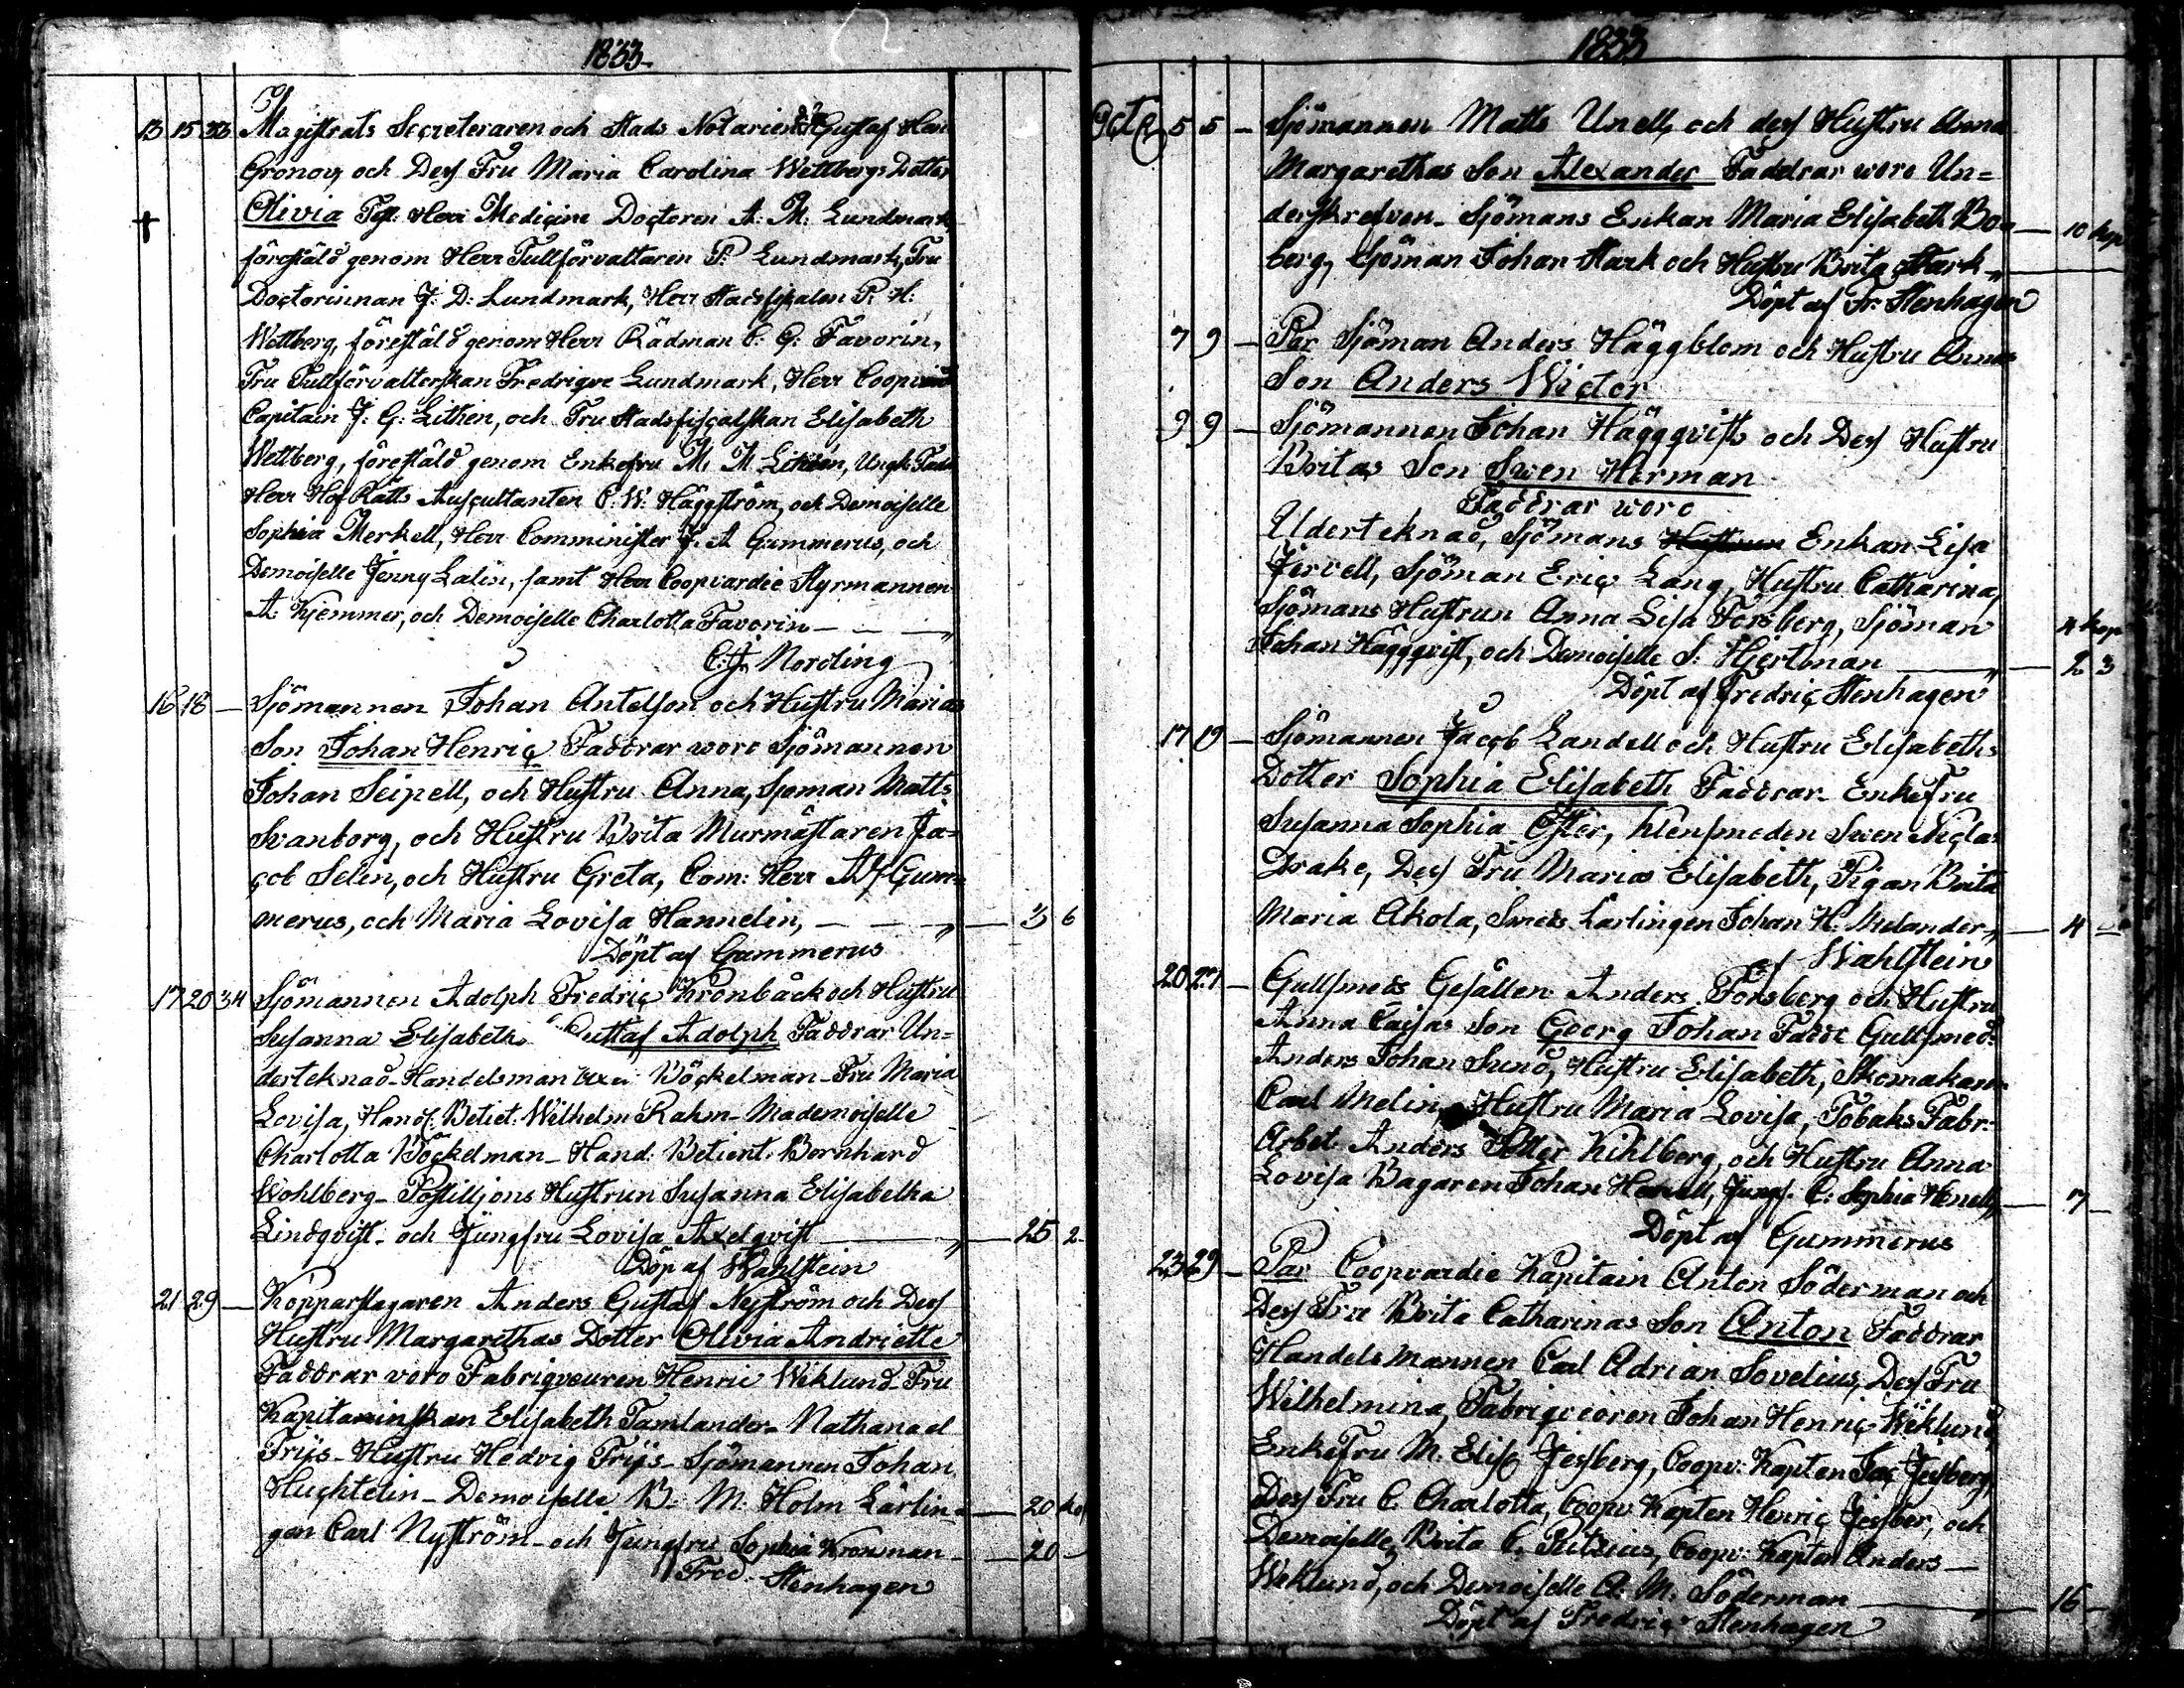 1833.
13 15 33 Magistrats Secreteraren och Stads Notarien Gustaf
Gronow och Dess Fru Maria Carolina Wettbergs Dotter
Olivia Tgl: Herr Medicine Doctoren A: M: Lundmark
föreställd genom Herr Tullförvaltaren P. Lundmark, Fru
Doctorinnan J: D: Lundmark, Herr Stadsfiskalen P: H:
Wettberg, föreställd genom Herr Rådman C: G: Favorin,
Fru Tullförvalterskan Fredrique Lundmark, Herr Coopvard
Capitain J: G: Lithen, och Fru Stadsfiscalskan Elisabeth
Wettberg, föreställd genom Enkefru M. M Lithén, Ungk: Fadd
Herr Hof Rätts Auscultanten C. W. Häggström, och Demoiselle
Sophia Merkell, Herr Comminister J. A Gummerus, och
Demoiselle Jenny Lalin, samt Herr Coopvardie Styrmannen
A. Kjemmer, och Demoiselle Charlotta Favorin — — — "
C. J. Nording
16 18 — Sjömannen Johan Antelson och Hustru Marias
Son Johan Henric Faddrar woro Sjömannen
Johan Seipell, och Hustru Anna, Sjöman Matts
Svanborg, och Hustru Brita Murmästaren Ja=
cob Selin, och Hustru Greta, Com: Herr A Gum=
merus, och Maria Lovisa Hannelin, — — — " — 3 6
Döpt af Gummerus
17 20 34 Sjömannen Adolph Fredric Kronback och Hustru
Susanna Elisabeths Gustaf Adolph Faddrar Un=
derteknad - Handelsman Böckelman - Fru Maria
Lovisa, Hand: Betiet: Wilhelm Rahm - Mademoiselle
Charlotta Böckelman - Hand: Betient. Bernhard
Wohlberg - Postilljons Hustrun Susanna Elisabetha
Lindqvist - och Jungfru Lovisa Axelqvist — " — 25 2
Döp af Wahlstein
21 29 — Kopparslagaren Anders Gustaf Nyström och Dess
Hustru Margarethas Dotter Olivia Andriette
Faddrar voro Fabriqveuren Henric Wiklund - Fru
Kapitainskan Elisabeth Tamlander - Nathanael
Frijs - Hustru Hedvig Frijs - Sjömannen Johan
Huchtelin - Demoiselle B. M. Holm Lärlin= — 20 kop
gen Carl Nyström - och Jungfru Sophia Kronman — 20 -
Fred. Stenhagen
1833
Octb 5 5 — Sjömannen Matts Unell, och dess Hustru Anna
Margarethas Son Alexander Faddrar woro Un=
derskrefven - Sjömans Enkan Maria Elisabeth Bo= — 10 kop
berg, Sjöman Johan Stark och Hustru Brita Stark "
Döpt af Fr. Stenhagen
7 9 — Par Sjöman Anders Häggblom och Hustru Annas
Son Anders Wictor
9 9 — Sjömannen Johan Häggqvists och Dess Hustru
Britas Son Swen Herman
Faddrar woro
Uderteknad, Sjömans Enkan Lisa
Jervell, Sjöman Eric Lang, Hustru Catharina,
Sjömans Hustrun Anna Lisa Forsberg, Sjöman 4 kop
Johan Häggqvist, och Demoiselle S. Hjertman — " — 2 3
Döpt af Fredric Stenhagen
17 19 — Sjömannen Jacob Landell och Hustru Elisabeths
Dotter Sophia Elisabeth Faddrar - Enkefru
Susanna Sophia Öster, Klensmeden Swen Niclas
Drake, Dess Fru Maria Elisabeth, Pigan Brita
Maria Akola, Smeds Larlingen Johan H. Melander " — 4 —
af Wahlstein
20 27 — Gullsmeds Gesällen Anders Forsberg och Hustru
Anna Caisas Son Georg Johan Fadd: Gullsmed:
Anders Johan Sund, Hustru Elisabeth, Skomakaren
Carl Melin, Hustru Maria Lovisa, Tobaks Fabr:
Arbet: Anders Kihlberg, och Hustru Anna
Lovisa Bagaren Johan Henell, Jungf. C: Sophia Henell, — 7 —
Döpt af Gummerus
23 29 — Par Coopvardie Kapitain Anton Söderman och
Dess Fru Brita Catharinas Son Anton Faddrar
Handelsmannen Carl Adrian Sovelius, Dess Fru
Wilhelmina, Fabriqveoren Johan Henric Wiklund,
Enkefru M. Elis Jessberg, Coopv: Kapten Jac Jesberg,
Dess Fru C. Charlotta, Coopv Kapten Henric Jessber, och
Demoiselle Brita C. Ritzius, Coopv: Kapten Anders —
Weklund, och Demoiselle A: M: Söderman — " — 16 —
Döpt af Fredric Stenhagen